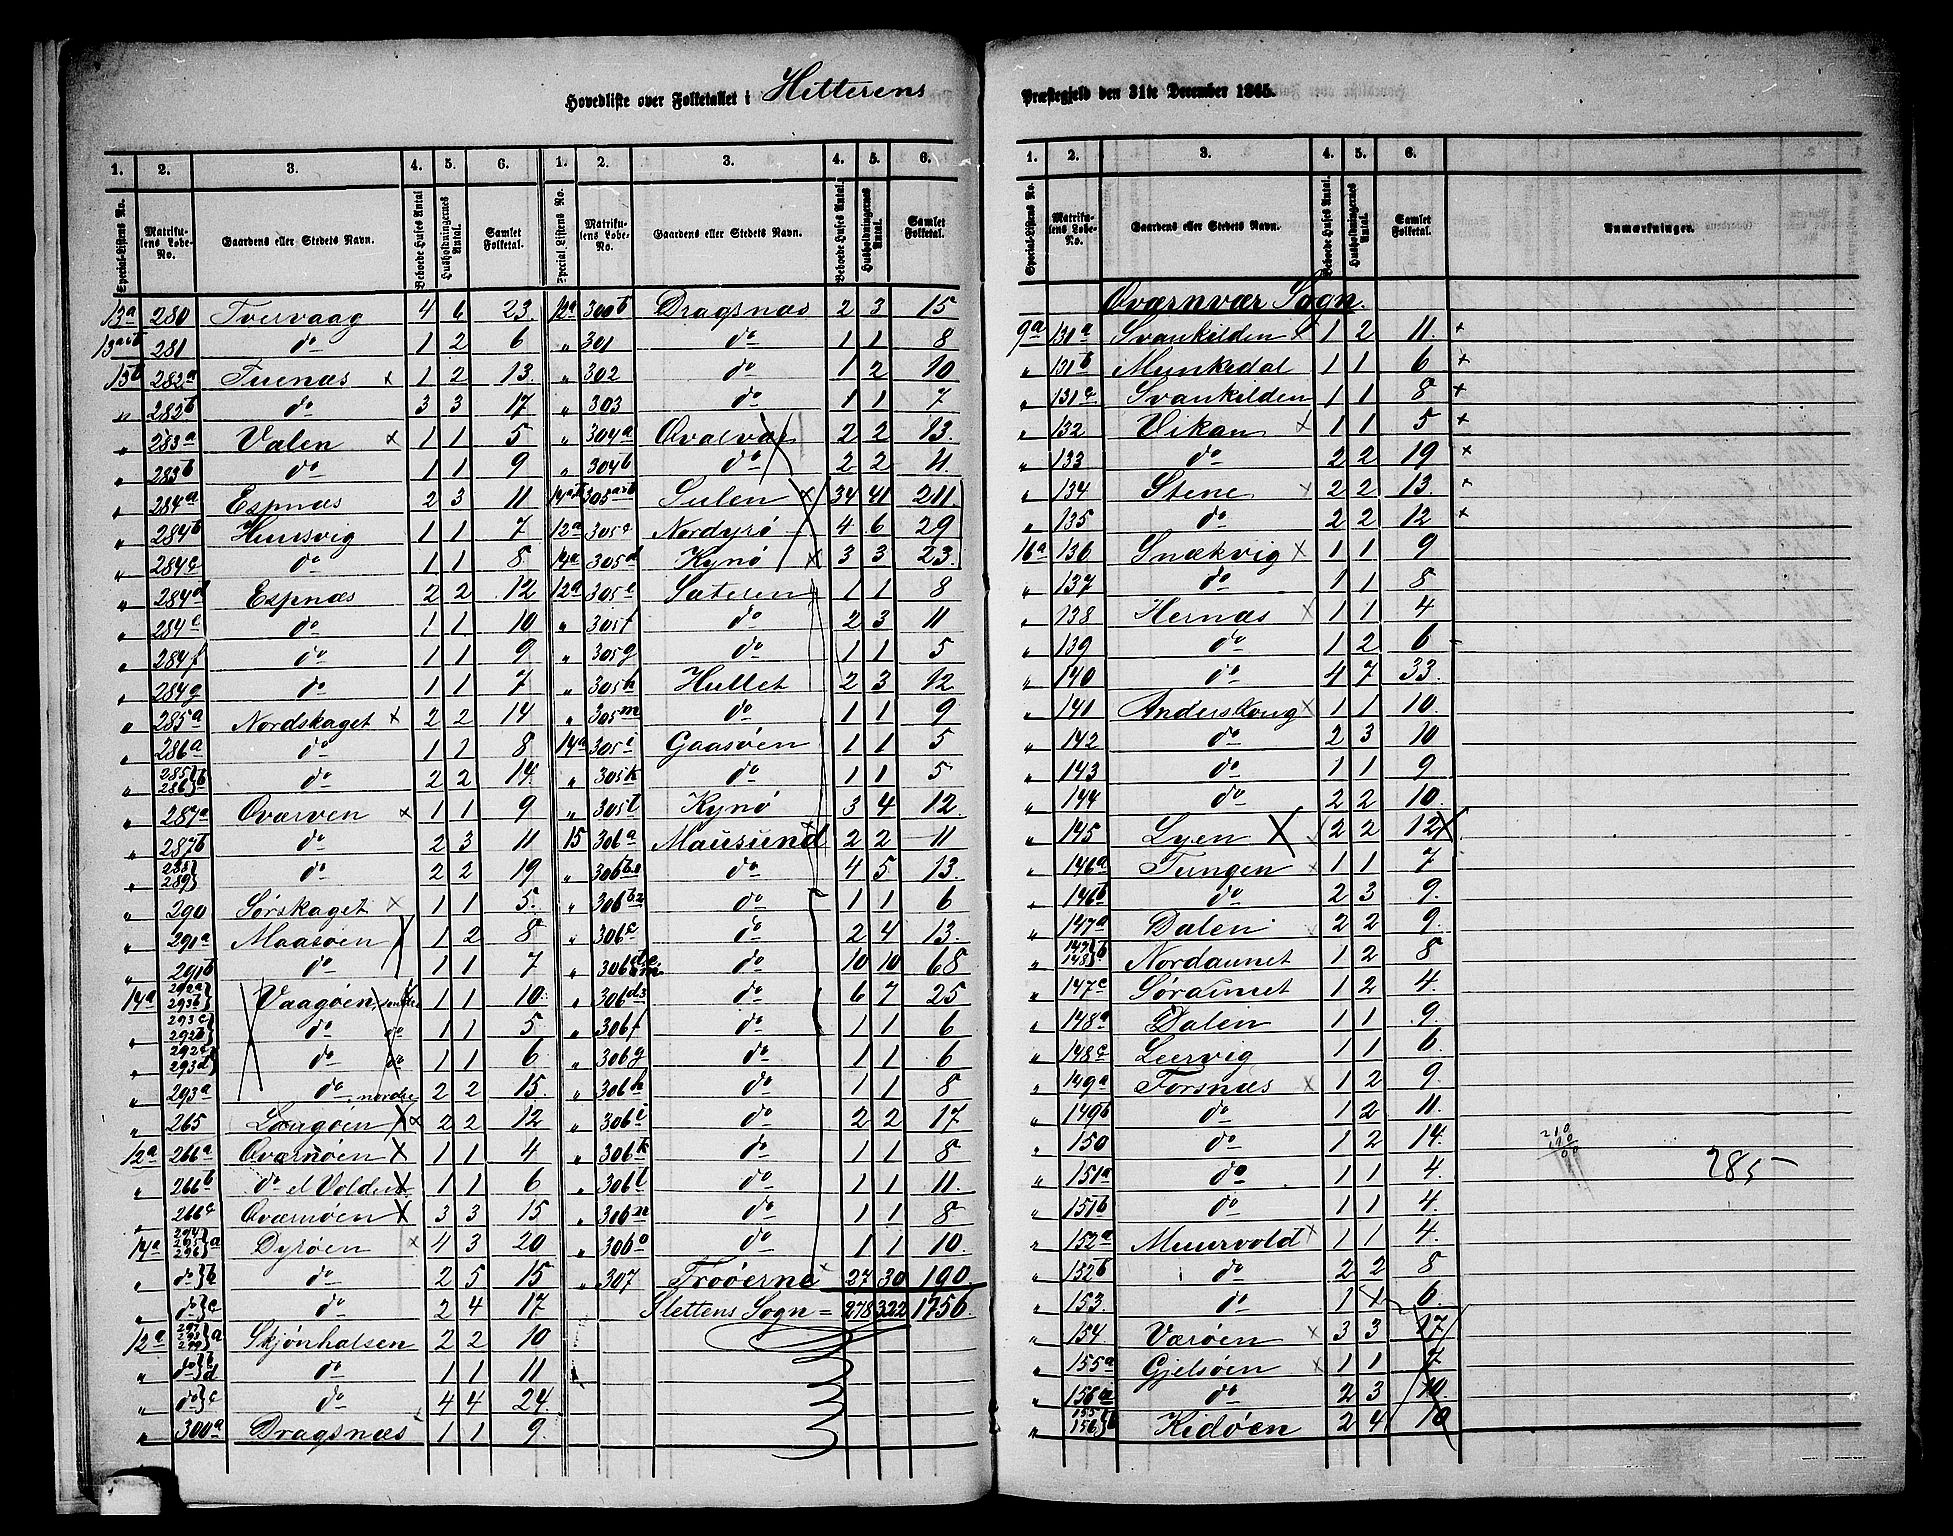 Hovedliste over Folketallet i Hitterens
1. 2. 3. 4. 5. 6. 1. 2. 3. 4. 5. 6.
Special-Listens No. Matrikulens Løbe-No. Gaardens eller Stedets Navn. Beboede Huses Antal Husholdningernes Antal. Samlet Folketal. Special Listens No. Matrikulens Løbe-No. Gaardens eller Stedets Navn. Beboede Huses Antal. Husholdningernes Antal. Samlet Folketal.
13a 280 Tvervaag 4 6 23. 12a 300b Dragsnæs 2 3 15
13a+b 281 do 1 2 6 " 301 do 1 1 8
15b 282a Tuenæs x 1 2 13. " 302 do 1 2 10
" 282b do 3 3 17 " 303 do 1 1 7
" 283a Valen x 1 1 5 " 304a Qvalvær 2 2 13.
" 283b do 1 1 9 " 304b do 2 2 11.
" 284a Espnæs 2 3 11 14a+b 305a+b Sulen x 34 41 211.
" 284b Hunsvig 1 1 7 12a 305c Nordyrø 4 6 29
" 284c do 1 1 8 14a 305d Kynø x 3 3 23.
" 284d Espnæs 2 2 12 12a 305e Sæteren 1 1 8
" 284e do 1 1 10 " 305f do 2 3 11
" 284f do 1 1 9 " 305g do 1 1 5
" 284g do 1 1 7 " 305h Hullet 2 3 12
" 285a Nordskaget x 2 2 14 " 305m do 1 1 9
" 286a do 1 1 8 14a 305i Gaasøen 1 1 5
" 285 286}b do 2 2 14. " 305k do 1 1 5
" 287a Qværven x 1 1 9 " 305l Kynø 3 4 12.
" 287b do 2 3 11 15 306a Mausund x 2 2 11
" 288 289} do 2 2 19 " 306b1 do 4 5 13.
" 290 Sørskaget x 1 1 5. " 306b2 do 1 1 6
" 291a Maasøen 1 2 8 " 306c do 2 4 13.
" 291b do 1 1 7 " 306 do 10 10 68
14a 292a 293b} Vaagøen, søndre 1 1 10. " 306d3 do 6 7 25
" 293c 292b} do do 1 1 5 " 306f do 1 1 6
" 292c 293d} do do 1 1 6 " 306g do 1 1 6
" 293a do nordre 2 2 15. " 306h do 1 1 8
" 265 Langøen x 2 2 12 " 306i do 2 2 17
12a 266a Qværnøen x 1 1 4 " 306k do 1 1 8
" 266b do el Volden 1 1 6 " 306l do 1 1 11.
" 266c Qværnøen x 3 3 15 " 306n do 1 1 8
14a 294 295 296}a Dyrøen x 4 3 20 " 306o do 1 1 10.
" do}b do 2 5 15 " 307 Frøøerne x 27 30 190.
" do}c do 2 4 17 Slettens Sogn = 278 322 1756.
12a 297 298 299}a Skjønhalsen 2 2 10
" do}b d do 1 1 11
" do}c do 4 4 24.
" 300a Dragsnæs 1 1 9.
Præstegjeld den 31te December 1865.
1. 2. 3. 4. 5. 6.
Special-Listens No. Matrikulens Løbe-No. Gaardens eller Stedets Navn. Beboede Huses Antal. Husholdningernes Antal. Samlet Folketal. Anmærkninger.
Qværnvær Sogn.
9a 131a Svankilden x 1 2 11. x
" 131b Munkedal 1 1 6 x
" 131c Svankilden 1 1 8 x
" 132 Vikan x 1 1 5 x
" 133 do 2 2 19 x
" 134 Stene x 2 2 13. x
" 135 do 2 2 12 x
16a 136 Snækvig x 1 1 9
" 137 do 1 1 8
" 138 Hernæs x 1 1 4
" 139 do 1 2 6
" 140 do 4 7 33.
" 141 Anderskoug x 1 1 10.
" 142 do 2 3 10
" 143 do 1 1 9
" 144 do 2 2 10.
" 145 Lyen X 2 2 12
" 146a Tungen x 1 1 7
" 146b do 2 3 9.
" 147a Dalen 2 2 9.
" 147 148}b Nordaunet 1 2 8
" 147c Søraunet 1 2 4.
" 148a Dalen 1 1 9.
" 148c Leervig 1 1 6.
" 149a Forsnæs x 1 2 9.
" 149b do 1 2 11.
" 150 do 1 2 14.
" 151a do 1 1 4. 285
" 151b do 1 1 4.
" 152a Muurvold x 1 1 4.
" 152b do 2 2 8
" 153. do 1 1 6.
" 154. Værøen x 3 3 17
" 155a Gjelsøen x 1 1 7
" 156a do 2 3 10.
" 155 156}b Kidøen 2 4 10